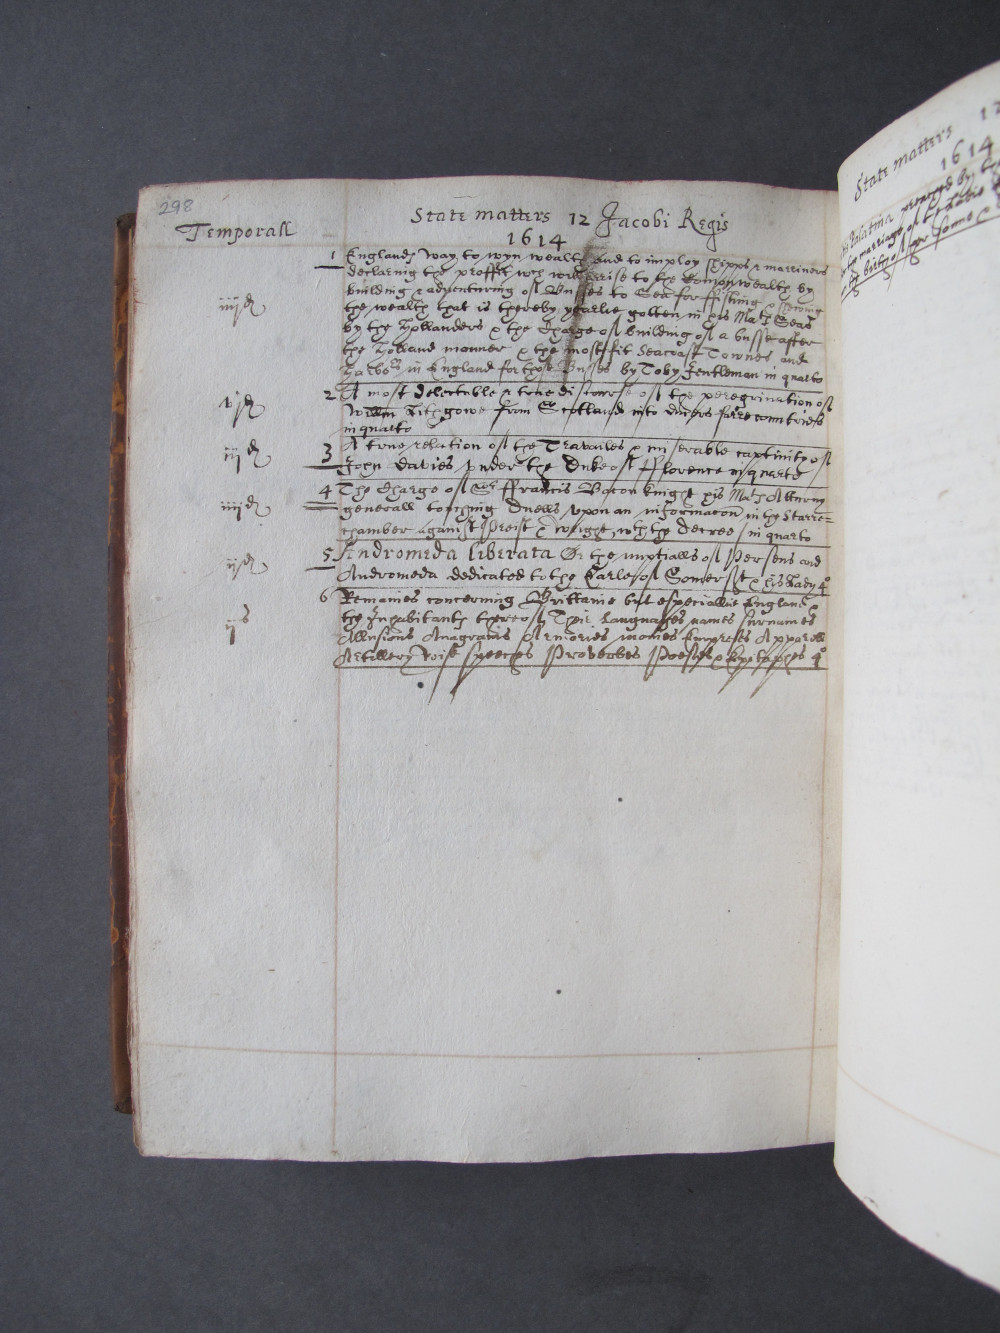 298
Temporall
State matters 12 Jacobi Regis
1614
1 Englands Way to wyn wealth and to imploy shipps & marriners
declaring the proffit wch will arise to the Comonwealth by
iiijd building & adventuring of Busses to Sea for ffishing
the wealth that is thereby yearlie gotten in his Mats Seas
by the Hollanders & the Charge of building of a busse after
the Holland manner & the most fit Seacoast Townes and
in England for those Busses by Toby Gentleman in quarto
vjd 2 A most delectable & true discourse of the peregrination of
Willm Lithgowe from Scotland into divers farre countries
in quarto
iijd 3 A true relation of the Travailes & miserable captivity of
John Davies vnder the Duke of fflorence in quarto
iiijd 4 The Charge of Sr ffrancis Bacon Knight his Mats Atturny
generall touching Duells vppon an informacon in the Starre=
chamber against Preist & Wright wth the Decree in quarto
iijd 5 Andromeda liberata Or the nuptialls of Perseus and
Andromeda dedicated to the Earle of Somerset & his Lady 4o
ijs 6 Remaines concerning Brittaine but especiallie England &
the Inhabitants thereof Their Languages names surnames
Allusions Anagrams Armories monies Empreses Apparell
Artillery Wise speeches Proverbes Poesies & Epitaphes 4o
State matters 12
1614
Palatina
the marriage of the Ladie